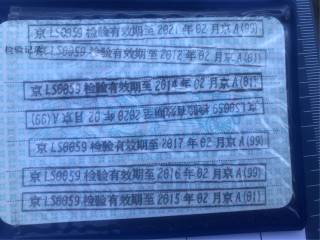 京LS0059检验有效期至2021年02月京A(99)
检验记录
京LS0059检验有效期至2012年02月京A(01)
京LS0059检验有效期至2014年02月京A(01)
京LS0059检验有效期至2020年02月京A(99)
京LS0059检验有效期至2017年02月京A(99)
京LS0059检验有效期至2016年02月京A(99)
京LS0059检验有效期至2015年02月京A(01)